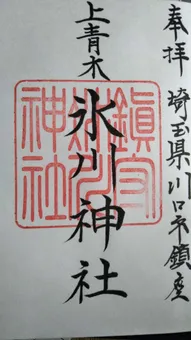 奉拝
埼玉県川口市鎮座
上青木
氷川神社
鎮守
氷川
神社